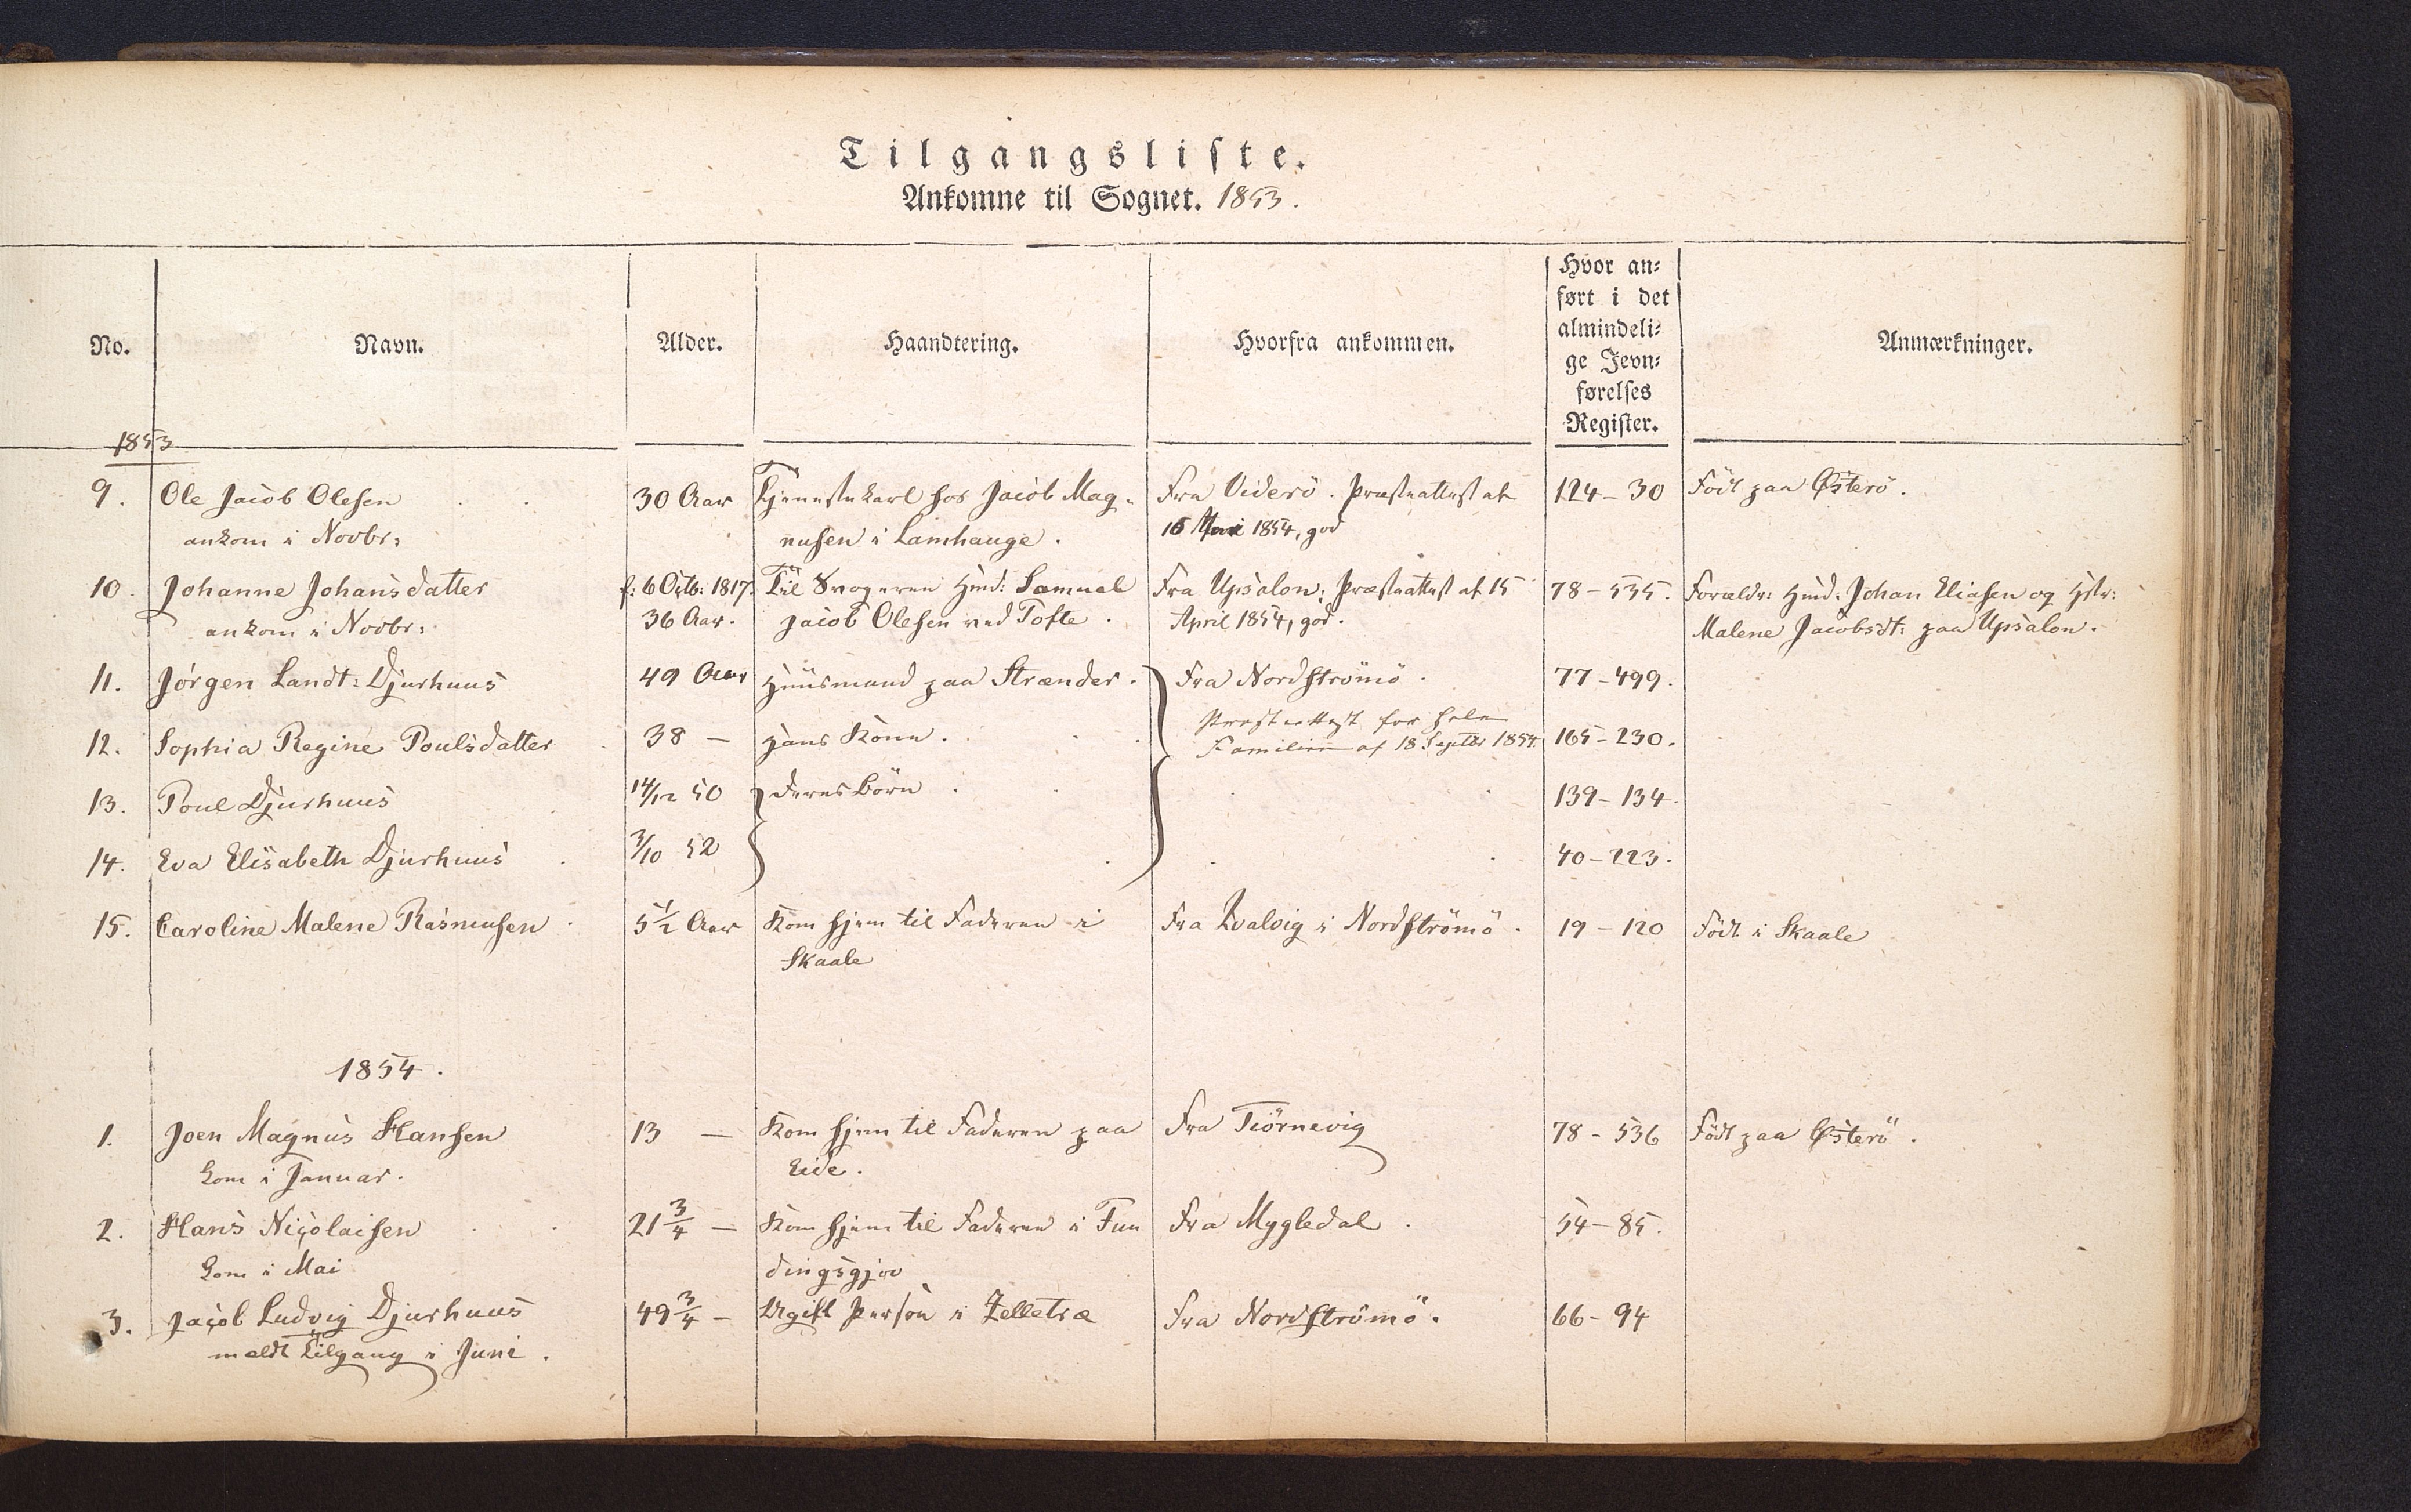 Tilgangsliste.
Ankomne til Sognet. 1853.
No.
Navn.
Alder.
Haandtering.
Hvorfra ankommen.
Hvor an-
ført i det
almindeli-
ge Jevn-
førelses
Register.
Anmærkninger.
1853
9. Ole Jacob Olesen 30 Aar Tjenestekarl hos Jacob Mag- Fra Viderö. Præsteattest af 124-30 Födt paa Østerö.
ankom i Novbr: nusen i Lamhauge. 16 Mai 1854, god
10. Johanne Johansdatter f: 6 Octb: 1817. Til Svogeren Hmd: Samuel Fra Upsalon: Præsteattest af 15 78-535. Forældr: Hmd: Johan Eliasen og Hstr:
ankom i Novbr: 36 Aar. Jacob Olesen ved Tofte. April 1854, god. Malene Jacobsdt: paa Upsalon.
11. Jörgen Landt: Djurhuus 49 Aar Huusmand paa Strænder. Fra Nordströmö. 77-499.
Præsteattest for hele
12. Sophia Regine Poulsdatter 38 — Hans Kone. Familien af 18 Septbr 1854. 165-230.
13. Poul Djurhuus 14/12 50 Deres Börn 139-134.
14. Eva Elisabeth Djurhuus 3/10 52 40-223.
15. Caroline Malene Rasmusen 5 1/2 Aar Kom hjem til Faderen i Fra Qvalvig i Nordströmö. 19-120 Födt i Skaale
Skaale
1854.
1. Joen Magnus Hansen 13 — Kom hjem til Faderen paa Fra Tiörnevig 78-536 Födt paa Österö.
kom i Januar. Eide.
2. Hans Nicolaisen 21 3/4 — Kom hjem til Faderen i Fun Fra Mygledal 54-85.
kom i Mai dingsgjov
3. Jacob Ludvig Djurhuus 49 3/4 — Ugift Person i Selletræ Fra Nordströmö. 66-94
meldt Tilgang i Juni.